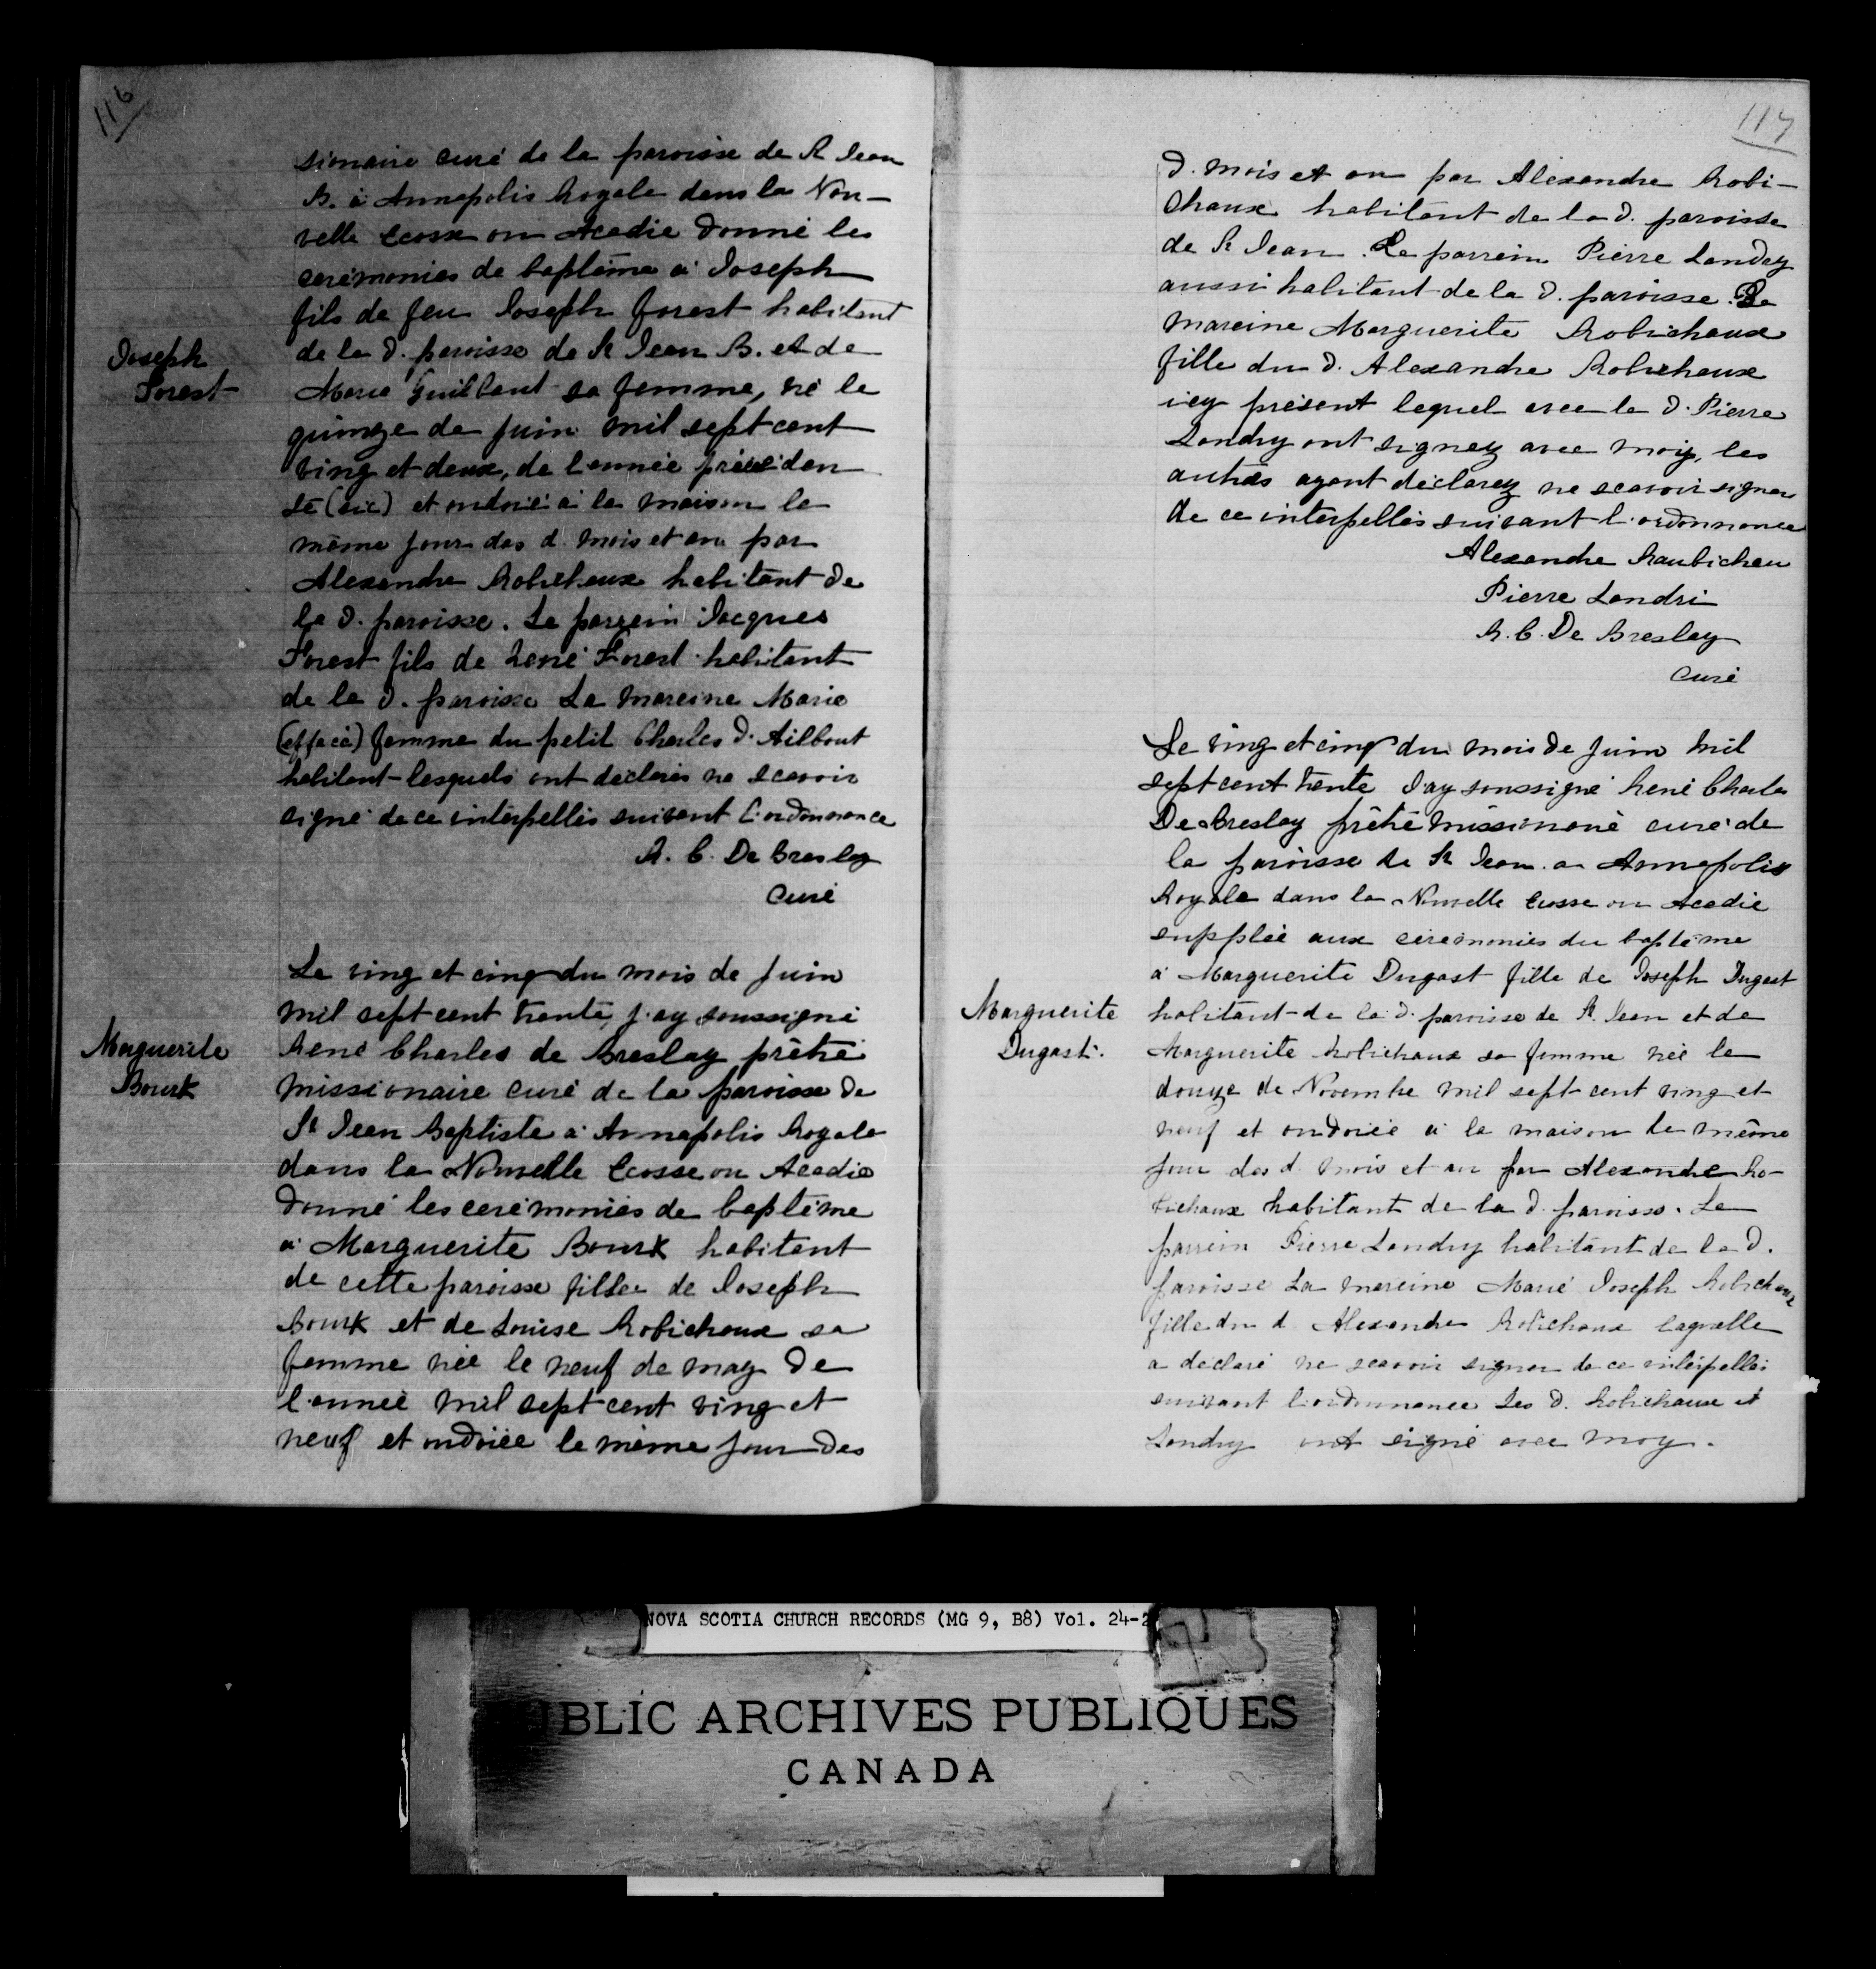 116
sionaire curé de la paroisse de St Jean
B. à Annapolis Royale dans la Nou-
velle Ecosse ou Acadie donné les
cérémonies de baptême à Joseph
fils de feu Joseph Forest habitant
de la d. paroisse de St Jean B. et de
Joseph
Forest
Marie Guilbaut sa femme, né le
quinze de juin mil sept cent
ving et deux, de l'année précéden
te (sic) et ondoié à la maison le
même jour des d. mois et an par
Alexandre Robichaux habitant de
la d. paroisse. Le parrein Jacques
Forest fils de René Forest habitant
de la d. paroisse La mareine Marie
(effacé) femme du petit Charles d. Ailbout
habitant lesquels ont déclarés ne scavoir
signé de ce interpellés suivant l'ordonnance
R. C. De Breslay
Curé
Le ving et cinq du mois de Juin
mil sept cent trente, j'ay soussigné
Marguerite
Bourk
René Charles de Breslay prêtre
missionaire curé de la paroisse de
St Jean Baptiste à Annapolis Royale
dans la Nouvelle Ecosse ou Acadie
donné les cerémonies de baptême
à Marguerite Bourk habitant
de cette paroisse fille de Joseph
Bourk et de Louise Robichaux sa
femme née le neuf de may de
l'année mil sept cent ving et
neuf et ondoiée le même jour des
117
d. mois et an par Alexandre Robi-
chaux habitant de la d. paroisse
de St Jean. Le parrein Pierre Landry
aussi habitant de la d. paroisse. La
mareine Marguerite Robichaux
fille du d. Alexandre Robichaux
icy présent lequel avec le d. Pierre
Landry ont signez avec moy, les
autres ayant déclarez ne scavoir signer
de ce interpellés suivant l'ordonnance
Alexandre Raubicheu
Pierre Landri
R. C. De Breslay
Curé
Le ving et cinq du mois de Juin mil
sept cent trente J'ay soussigné René Charles
De Breslay prêtre missionaré curé de
la paroisse de St Jean a Annapolis
Royale dans la Nouvelle Ecosse ou Acadie
supplée aux cérémonies du baptême
à Marguerite Dugast fille de Joseph Dugast
Marguerite
Dugast.
habitant de la d. paroisse de St. Jean et de
Marguerite Robichaux sa femme née le
douze de Novembre mil sept cent ving et
neuf et ondoiée à la maison le même
jour des d. mois et an par Alexandre Ro-
bichaux habitant de la d. paroisse. Le
parrein Pierre Landry habitant de la d.
paroisse La mareine Marie Joseph Robichaux
fille du d Alexandre Robichaux laquelle
a déclaré ne scavoir signer de ce intérpellés
suivant l'ordonnance Les d. Robichaux et
Landry ont signé avec moy.
NOVA SCOTIA CHURCH RECORDS (MG 9, B8) Vol. 24-2
BLIC ARCHIVES PUBLIQUES
CANADA